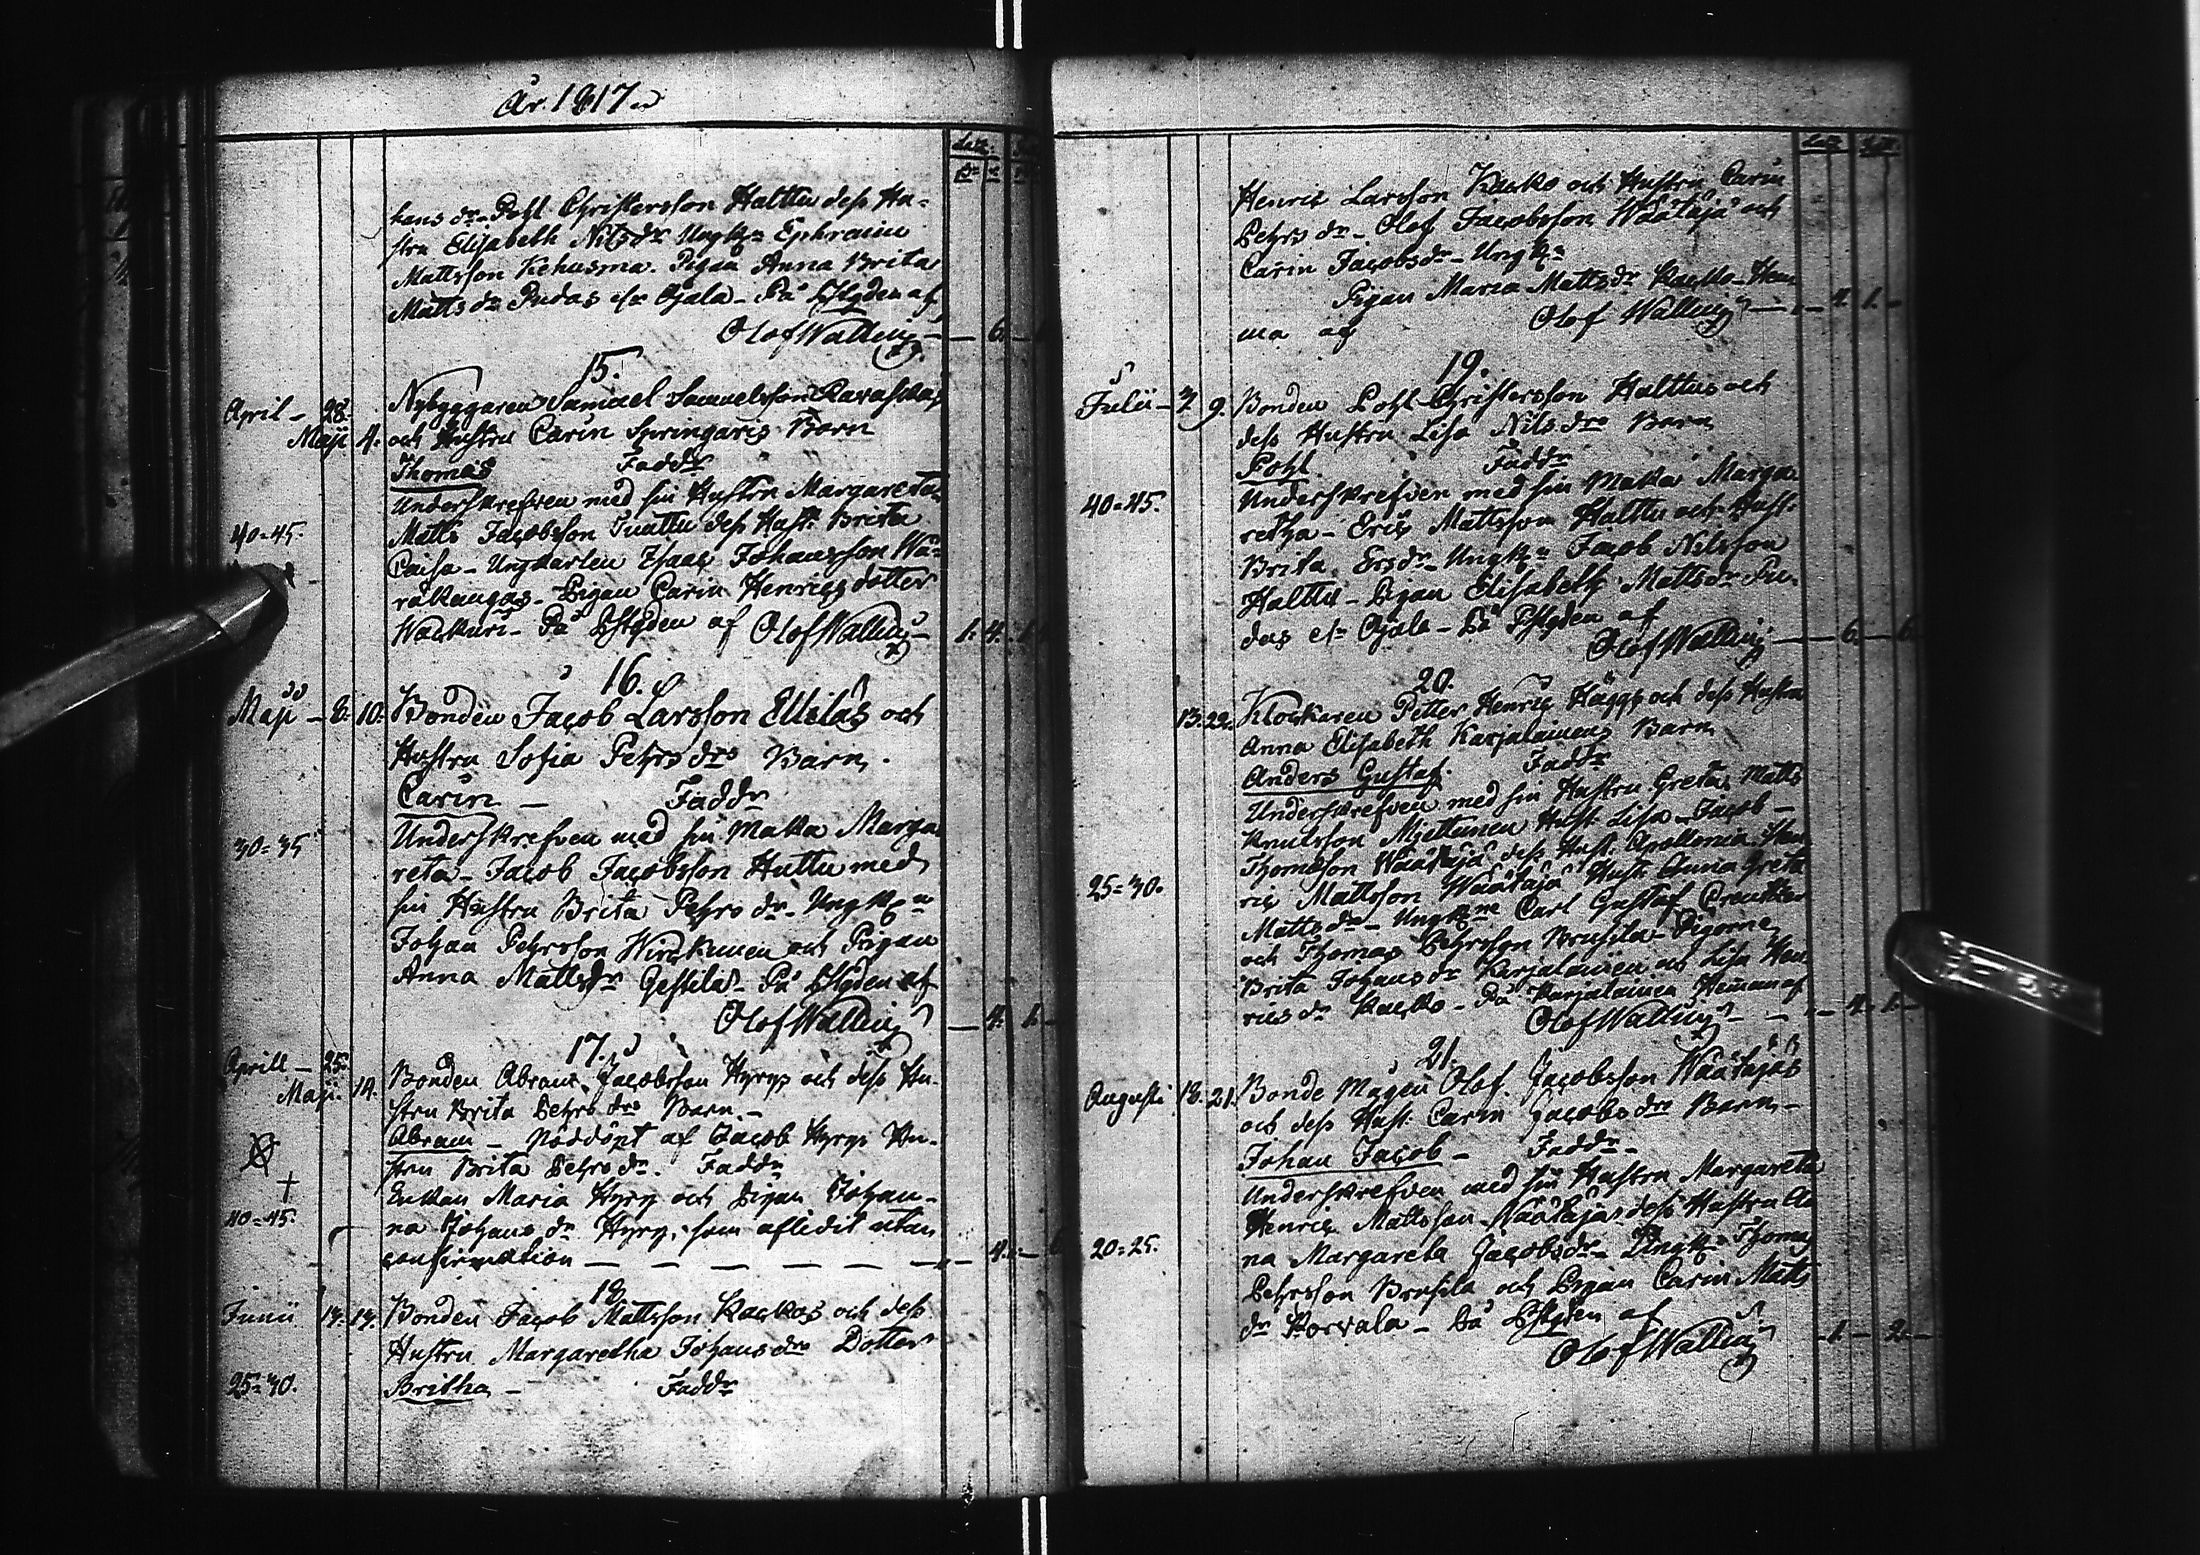 År. 1817.
hans dr. Pohl Christersson Halttu dess Hu-
stru Elisabeth Nilsdr Ungkn Ephraim
Mattsson Kehusma. Pigan Anna Brita
Mattsdr Pudas Ojala - På af
Olof Wallin — 6.
15.
April - 28. Nybyggaren Samuel Samuelsson
Maji 4. och Hustru Carin Springaris Barn
Thomas Faddr
Underskrefven med sin Hustru Margareta
Matts Jacobsson dess Hust. Brita
40=45.
Caisa - Ungkarlen Isaac Johansson Wä-
räkangas - Pigan Carin Henrics dotter
På af Olof Wallin 1. 4.
16.
Maji - 8. 10. Bonden Jacob Larsson Ellilas och
Hustru Sofia Pehrs drs Barn.
Carin - Faddr
Underskrefven med sin Maka Marga
30=35
reta - Jacob Jacobsson Huttu med
sin Hustru Brita Pehrs dr - Ungkn
Johan Pehrsson Wirckunen och Pigan
Anna Mattsdr - På af
Olof Wallin — 4. 1.
17.
Aprill - 25. Bonden Abram Jacobsson Hyrys och dess Hu-
Maji. 14.
stru Brita Pehrs drs Barn -
Abram - Nöddöpt af Jacob Hyrys Hu-
stru Brita Pehrs dr. Faddr
+
Enkan Maria Hyry och Pigan Johan-
40=45.
na Johans dr Hyry, som aflidit utan
confirmation — 4.
18.
Junii 13. 13. Bonden Jacob Mattsson Kackos och dess
Hustru Margaretha Johans drs Dotter
25=30. Britha - Faddr
Henric Larsson Kacko och Hustru Carin
Pehrs dr - Olof Jacobsson Wäätäjä och
Carin Jacobsdr - Ungkn
Pigan Maria Mattsdr Kacko - Hem
ma af Olof Wallin — 4. 1.
19.
Julii - 7. 9. Bonden Pohl Christersson Halttus och
dess Hustru Lisa Nils drs Barn
Pohl. Faddr
Underskrefven med sin Maka Marga
40=45.
retha - Eric Mattsson Halttu och Hust:
Brita Ersdr - Ungkn Jacob Nilsson
Halttu - Pigan Elisabeth Mattsdr Pu-
das Ojala - På af
Olof Wallin — 6. — 6.
20.
13. 22. Klockaren Petter Henric Häggs och dess Hustru
Anna Elisabeth Karjalainens Barn
Anders Gustaf. Faddr
Underskrefven med sin Hustru Greta, Matts
Knutsson Miettunen Hust. Lisa - Jacob -
Thomasson Wäätäjä dess Hust. Apollonia. Hen
25=30.
ric Mattsson Wäätäjä Hust. Anna Greta
Mattsdr - Ungkne Carl Gustaf
och Thomas Pehrsson Brusila - Pigorne
Brita Johansdr Karjalainen och Lisa Hen
rics dr Kacko - På Karjalainen Heman af
Olof Wallin — 4. 1.
21.
Augusti 18. 21. Bonde Mågen Olof Jacobsson Wäätäjäs
och dess Hust. Carin Jacobs drs Barn -
Johan Jacob - Faddr -
Underskrefven med sin Hustru Margareta
Henric Mattsson Wäätäjä dess Hustru An
20=25.
na Margareta Jacobsdr - Ungkn Thomas
Pehrsson Brusila och Pigan Carin Matts
dr Korvala - På af
Olof Wallin - 1. - 2. -